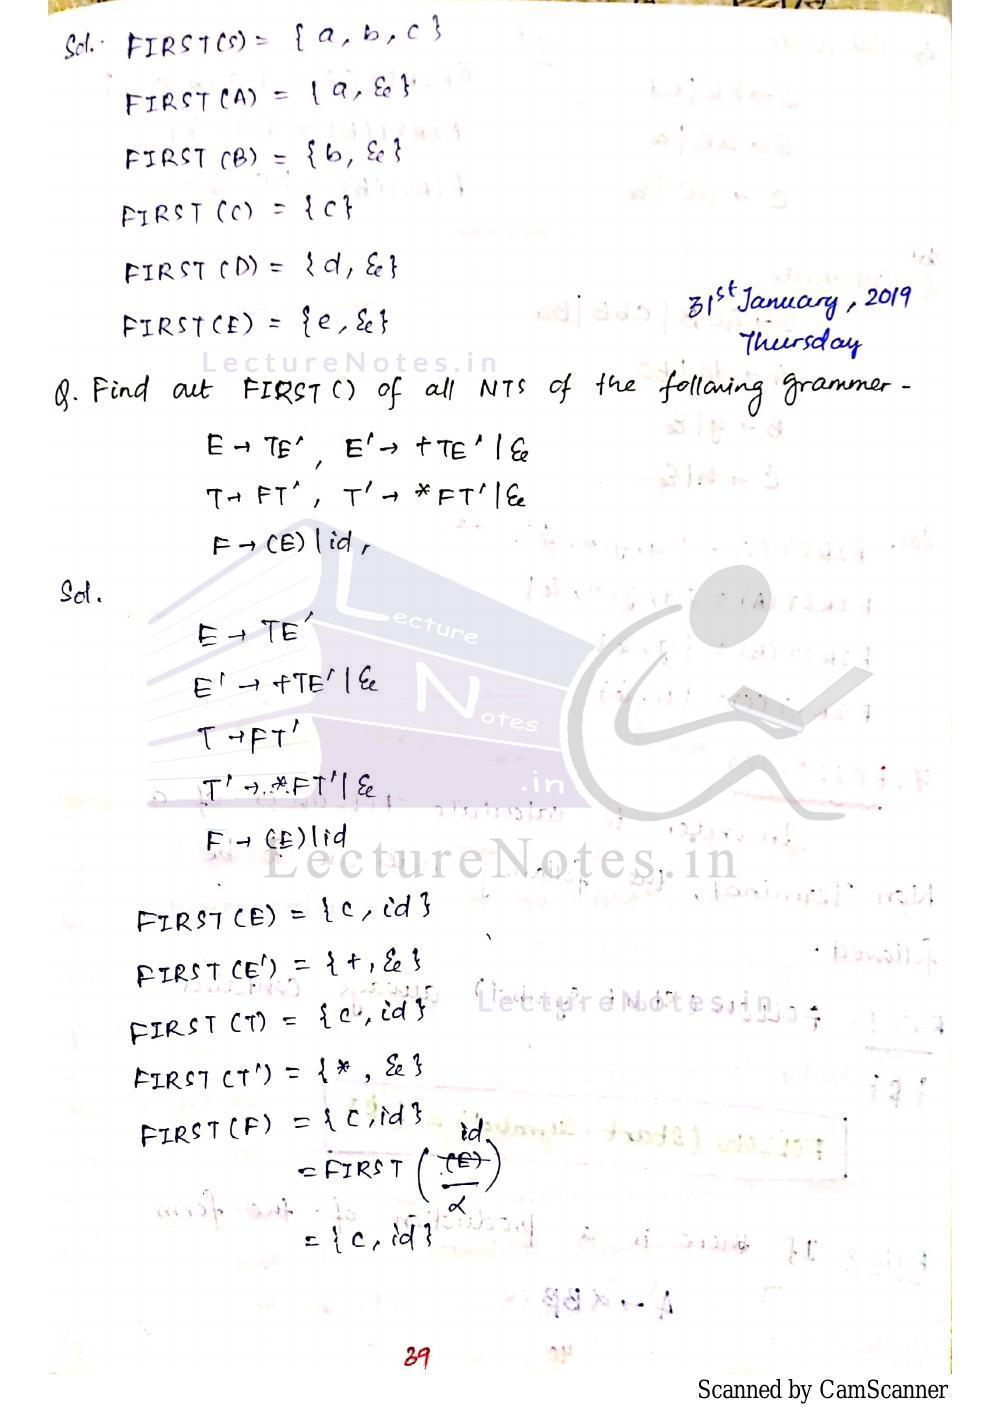 Sol. FIRST(S) = { a, b, c }
FIRST(A) = { a, ε }
FIRST(B) = { b, ε }
FIRST(C) = { c }
FIRST(D) = { d, ε }
FIRST(E) = { e, ε }
31st January, 2019
Thursday
LectureNotes.in
Q. Find out FIRST() of all NTS of the following grammer -
E → TE′, E′ → +TE′ | ε
T → FT′, T′ → *FT′ | ε
F → (E) | id,
Sol.
E → TE′
E′ → +TE′ | ε
T → FT′
T′ → *FT′ | ε
F → (E) | id
Lecture
Notes
.in
LectureNotes.in
FIRST(E) = { (, id }
FIRST(E′) = { +, ε }
LectureNotes.in
FIRST(T) = { (, id }
FIRST(T′) = { *, ε }
FIRST(F) = { (, id }
id
= FIRST ( (E) )
α
= { (, id }
39
Scanned by CamScanner